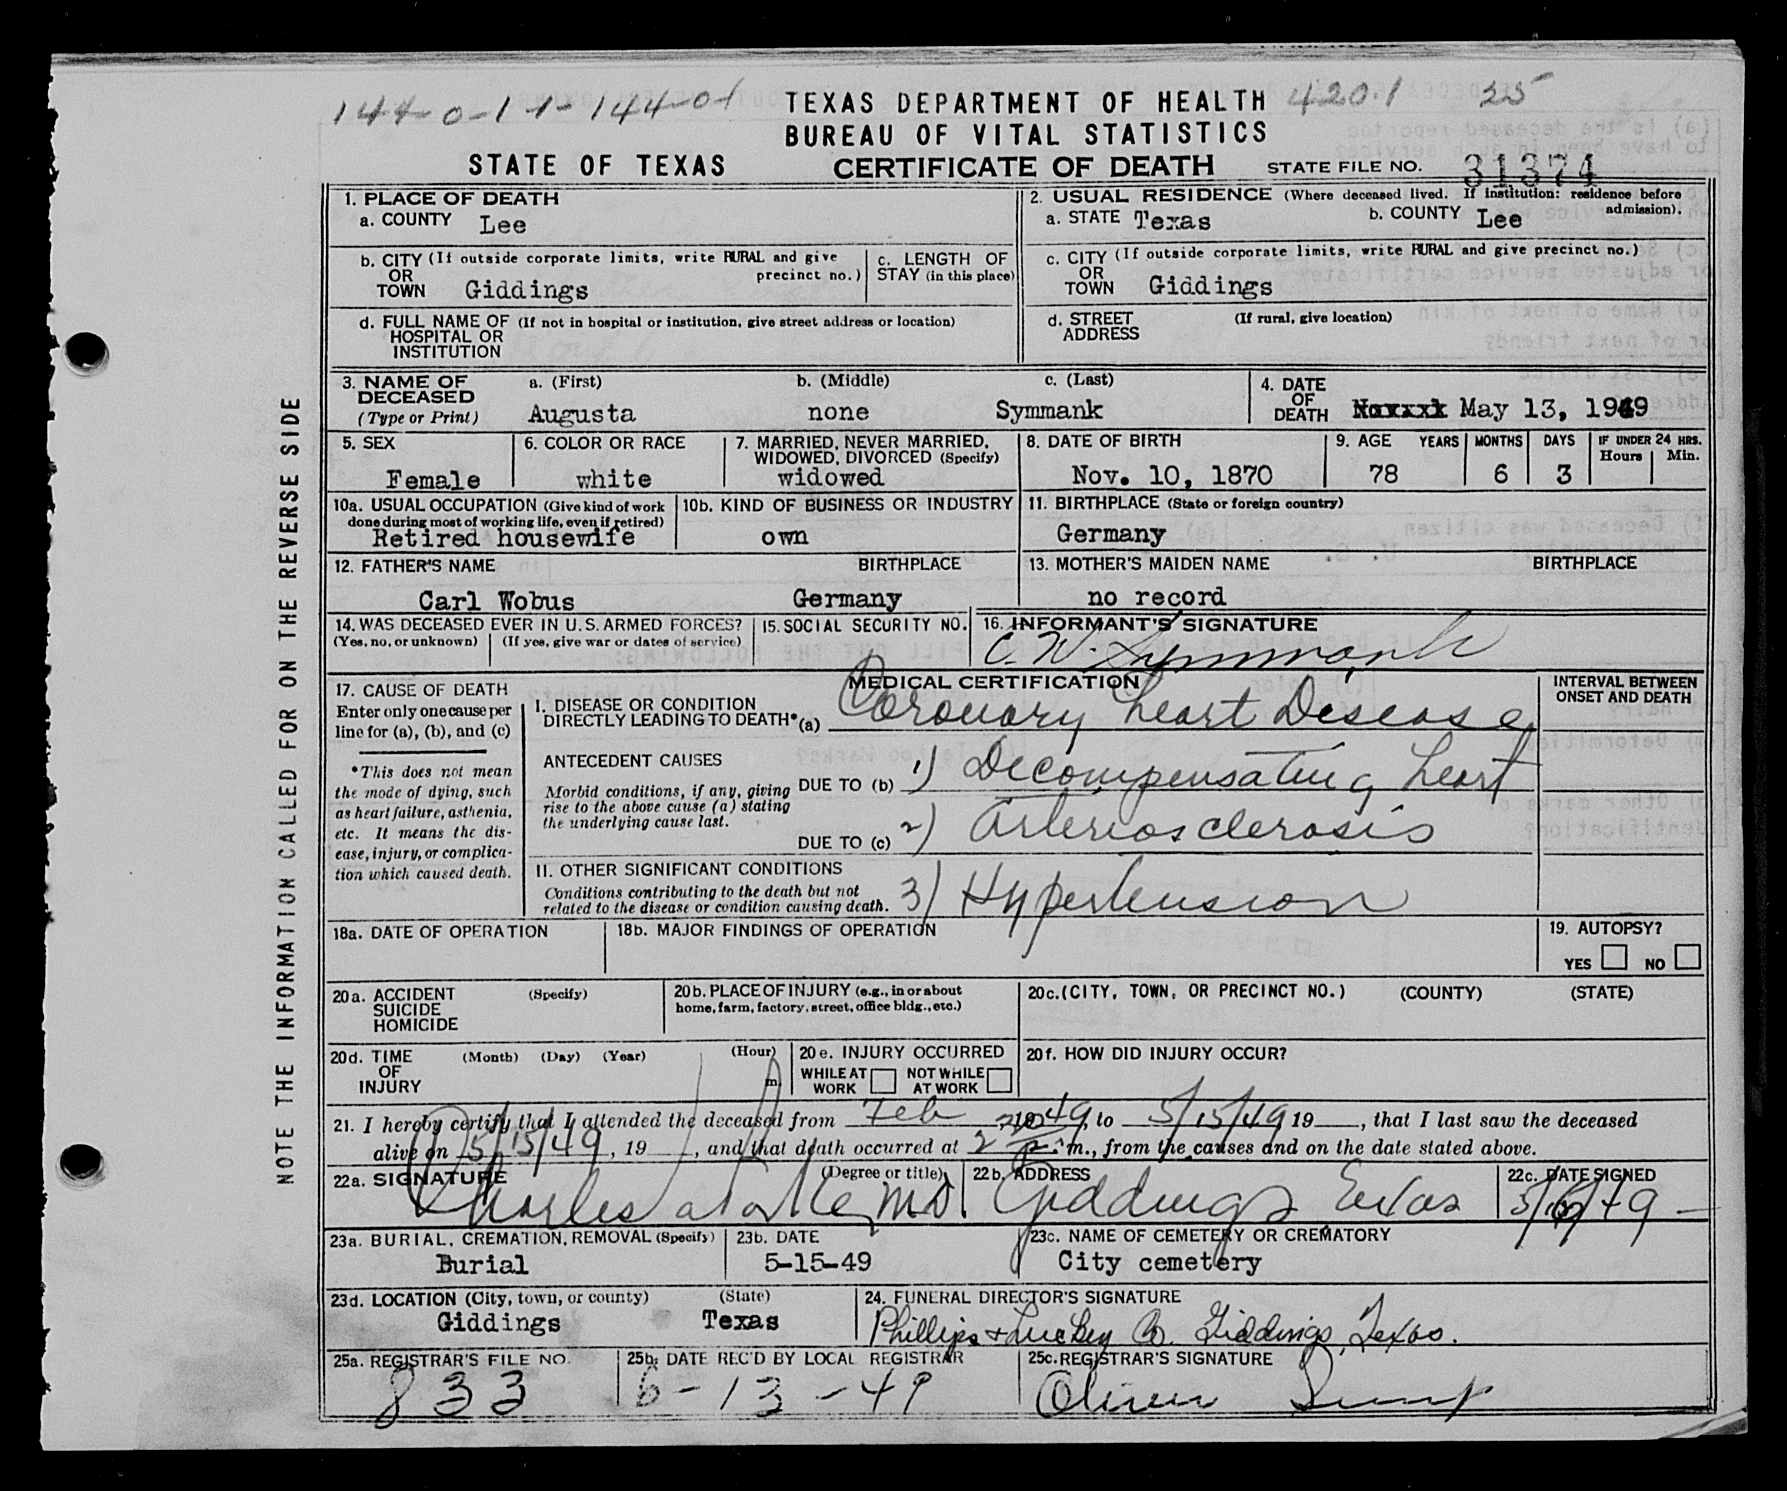 144-0-1 1-144-01 TEXAS DEPARTMENT OF HEALTH 420.1 25
BUREAU OF VITAL STATISTICS
STATE OF TEXAS CERTIFICATE OF DEATH STATE FILE NO. 31374
NOTE THE INFORMATION CALLED FOR ON THE REVERSE SIDE
1. PLACE OF DEATH
a. COUNTY Lee
2. USUAL RESIDENCE (Where deceased lived. If institution: residence before admission).
a. STATE Texas b. COUNTY Lee
b. CITY (If outside corporate limits, write RURAL and give precinct no.)
OR
TOWN Giddings
c. LENGTH OF
STAY (in this place)
c. CITY (If outside corporate limits, write RURAL and give precinct no.)
OR
TOWN Giddings
d. FULL NAME OF (If not in hospital or institution, give street address or location)
HOSPITAL OR
INSTITUTION
d. STREET (If rural, give location)
ADDRESS
3. NAME OF a. (First) b. (Middle) c. (Last)
DECEASED
(Type or Print) Augusta none Symmank
4. DATE
OF
DEATH May 13, 1949
5. SEX
Female
6. COLOR OR RACE
white
7. MARRIED, NEVER MARRIED,
WIDOWED, DIVORCED (Specify)
widowed
8. DATE OF BIRTH
Nov. 10, 1870
9. AGE YEARS MONTHS DAYS IF UNDER 24 HRS.
Hours Min.
78 6 3
10a. USUAL OCCUPATION (Give kind of work
done during most of working life, even if retired)
Retired housewife
10b. KIND OF BUSINESS OR INDUSTRY
own
11. BIRTHPLACE (State or foreign country)
Germany
12. FATHER'S NAME BIRTHPLACE
Carl Wobus Germany
13. MOTHER'S MAIDEN NAME BIRTHPLACE
no record
14. WAS DECEASED EVER IN U.S. ARMED FORCES?
(Yes, no, or unknown) (If yes, give war or dates of service)
15. SOCIAL SECURITY NO.
16. INFORMANT'S SIGNATURE
C. W. Symmank
17. CAUSE OF DEATH
Enter only one cause per
line for (a), (b), and (c)
*This does not mean
the mode of dying, such
as heart failure, asthenia,
etc. It means the dis-
ease, injury, or complica-
tion which caused death.
MEDICAL CERTIFICATION
INTERVAL BETWEEN
ONSET AND DEATH
I. DISEASE OR CONDITION
DIRECTLY LEADING TO DEATH*(a) Coronary heart Disease
ANTECEDENT CAUSES
Morbid conditions, if any, giving
rise to the above cause (a) stating
the underlying cause last.
DUE TO (b) 1) Decompensating heart
DUE TO (c) 2) Arteriosclerosis
II. OTHER SIGNIFICANT CONDITIONS
Conditions contributing to the death but not
related to the disease or condition causing death.
3) Hypertension
18a. DATE OF OPERATION
18b. MAJOR FINDINGS OF OPERATION
19. AUTOPSY?
YES NO
20a. ACCIDENT (Specify)
SUICIDE
HOMICIDE
20b. PLACE OF INJURY (e.g., in or about
home, farm, factory, street, office bldg., etc.)
20c. (CITY, TOWN, OR PRECINCT NO.) (COUNTY) (STATE)
20d. TIME (Month) (Day) (Year) (Hour)
OF
INJURY m.
20e. INJURY OCCURRED
WHILE AT NOT WHILE
WORK AT WORK
20f. HOW DID INJURY OCCUR?
21. I hereby certify that I attended the deceased from Feb 1949, to 5/15/49 19, that I last saw the deceased
alive on 5/15/49, 19, and that death occurred at 2 p. m., from the causes and on the date stated above.
22a. SIGNATURE (Degree or title)
Charles M.D.
22b. ADDRESS
Giddings Texas
22c. DATE SIGNED
23a. BURIAL, CREMATION, REMOVAL (Specify)
Burial
23b. DATE
5-15-49
23c. NAME OF CEMETERY OR CREMATORY
City cemetery
23d. LOCATION (City, town, or county) (State)
Giddings Texas
24. FUNERAL DIRECTOR'S SIGNATURE
Phillips & Luckey Co. Giddings, Texas.
25a. REGISTRAR'S FILE NO.
833
25b. DATE REC'D BY LOCAL REGISTRAR
6-13-49
25c. REGISTRAR'S SIGNATURE
Oliver